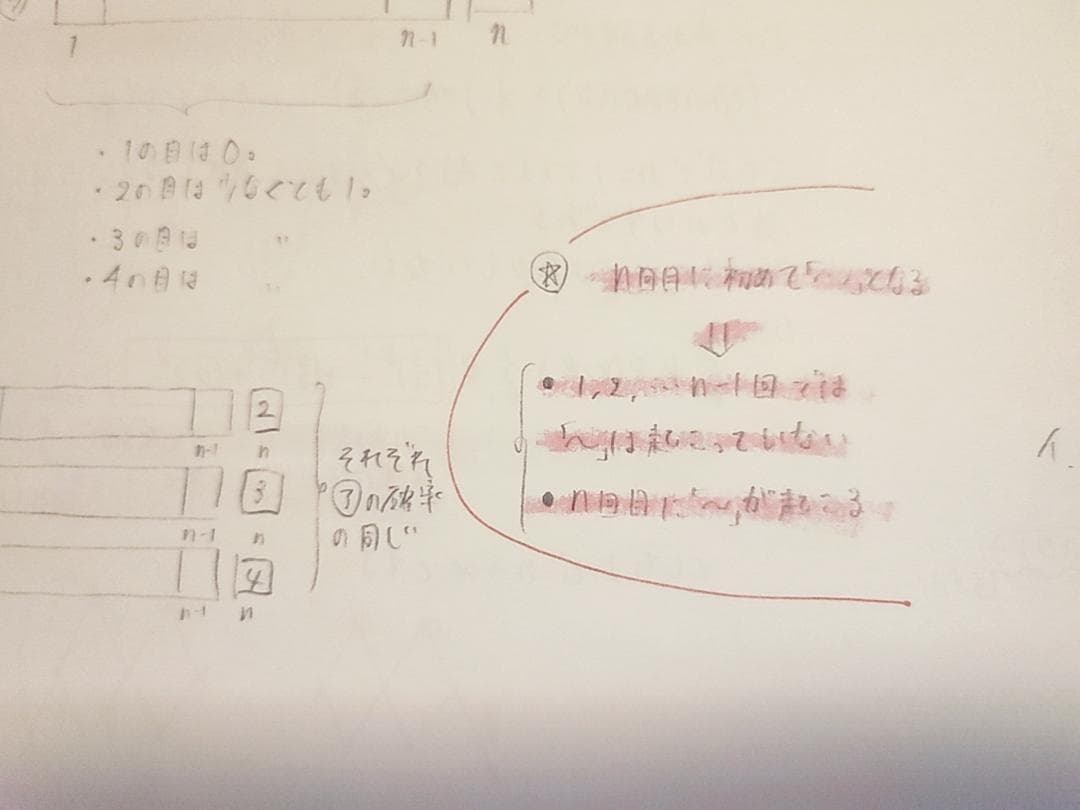 1 n-1 n
・1の目は0。
・2の目は少なくとも1。
・3の目は 〃
・4の目は 〃
2
n-1 n
3
n-1 n
4
n-1 n
それぞれ
の確率
の同じ
☆ n回目に初めて「〜」となる
⇓
• 1, 2, … n-1回では
「〜」は起こってもいない
• n回目に「〜」が起こる